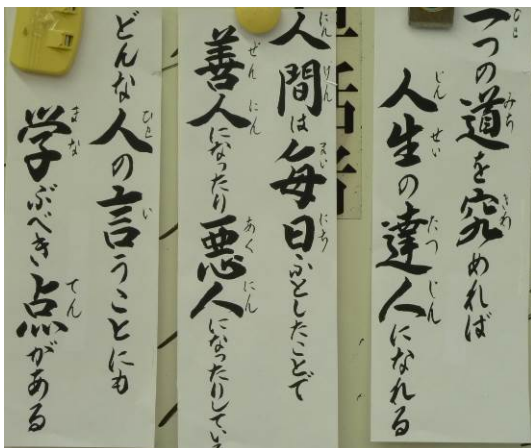 一つの道を究めれば
人生の達人になれる
人間は毎日ふとしたことで
善人になったり悪人になったりしている
どんな人の言うことにも
学ぶべき点がある